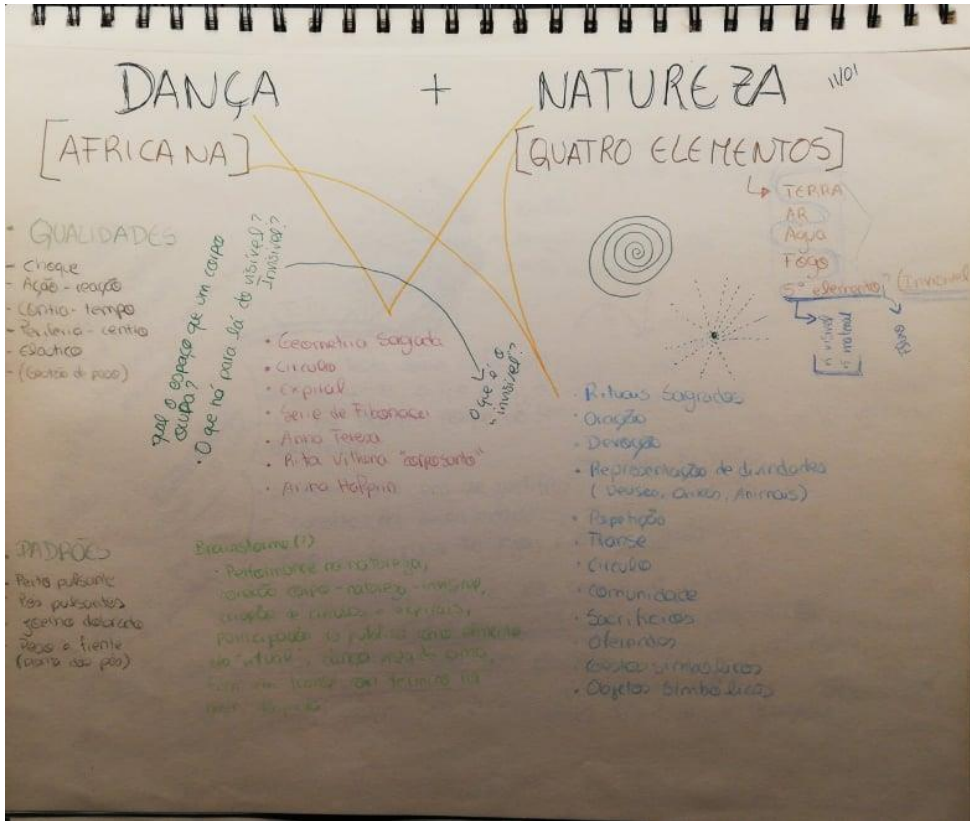 DANÇA + NATUREZA 11/01
[AFRICANA] [QUATRO ELEMENTOS]
TERRA
AR
Água
Fogo
5º elemento
• QUALIDADES
- Choque
- Ação - reação
- Contra - tempo
- Periferia - centro
- Elástico
- (Gestão de peso)
qual o espaço que um corpo
ocupa?
• O que há para lá do visível?
Invisível?
O que é o
invisível?
• Geometria Sagrada
• Circulo
• Espiral
• Serie de Fibonacci
• Anna Teresa
• Rita Vilhena "corposanto"
• Anna Halprin
• Rituais Sagrados
• Oração
• Devoção
• Representação de divindades
(Deuses, Orixas, Animais)
• Repetição
• Transe
• Circulo
• Comunidade
• Sacrificios
• Oferendas
• Gestos simbólicos
• Objetos Simbólicos
PADRÕES
- Peito pulsante
- Pés pulsantes
- Joelho dobrado
- Peso à frente
Brainstorme (?)
• Performance na natureza,
corpo - natureza - invisivel,
criação de circulos e espirais,
participação do publico como elemento
do "ritual",